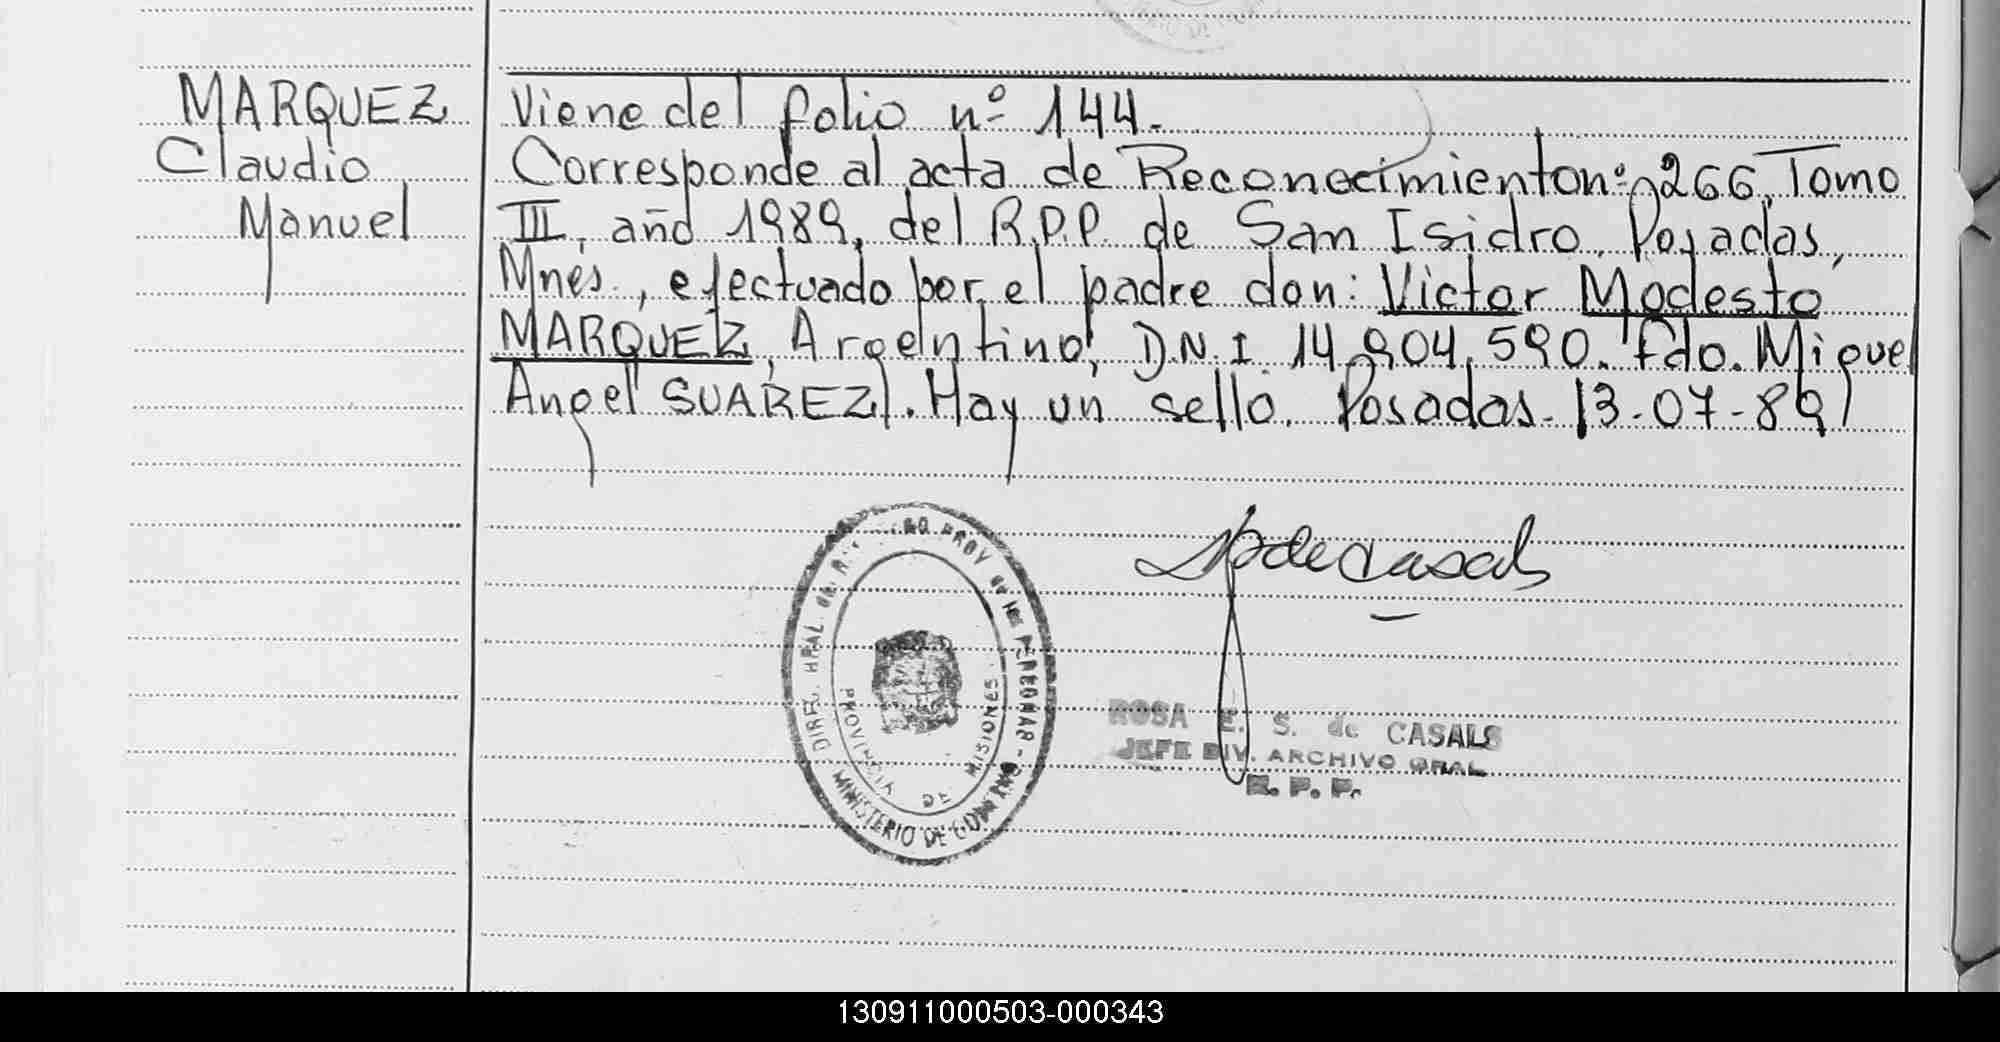 MARQUEZ
Claudio
Manuel
Viene del folio nº 144.
Corresponde al acta de Reconocimiento nº 266, Tomo
III, año 1989, del R.P.P. de San Isidro, Posadas,
Mnes., efectuado por el padre don: Victor Modesto
MARQUEZ, Argentino, D.N.I. 14.904.590. fdo. Miguel
Angel SUAREZ). Hay un sello. Posadas. 13-07-89
DE CASALS
ROSA E. S. de CASALS
JEFE DIV. ARCHIVO GRAL
R. P. P.
PROV de las PERSONAS
MINISTERIO DE GOBIERNO
PROVINCIA DE MISIONES
130911000503-000343